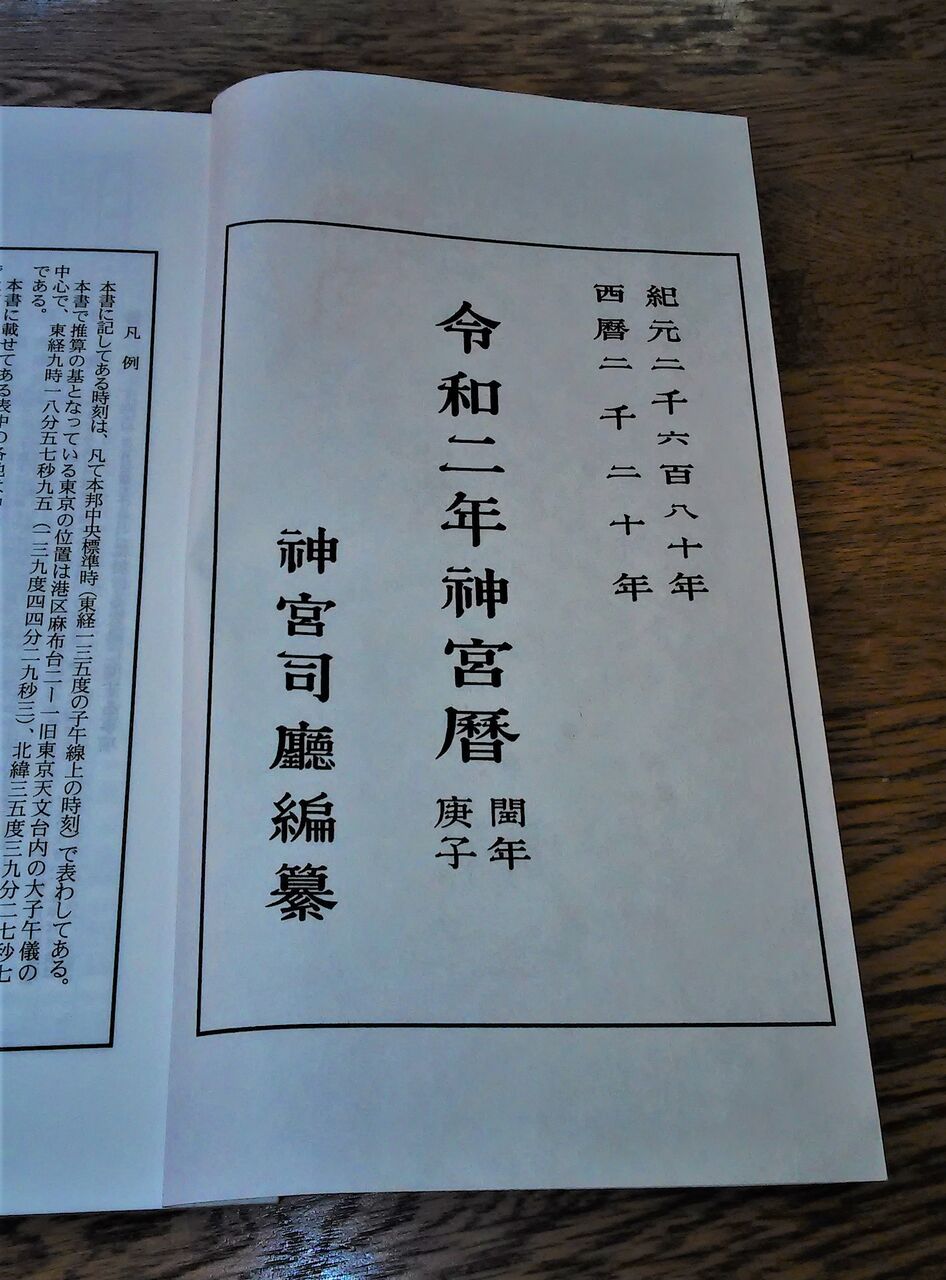 紀元二千六百八十年
西暦二千二十年
令和二年神宮暦
閏年
庚子
神宮司廳編纂
凡例
本書に記してある時刻は、凡て本邦中央標準時(東経一三五度の子午線上の時刻)で表わしてある。
本書で推算の基となっている東京の位置は港区麻布台二ー一旧東京天文台内の大子午儀の
中心で、東経九時一八分五七秒九五(一三九度四四分二九秒三)、北緯三五度三九分二七秒七
である。
本書に載せてある表中の各地